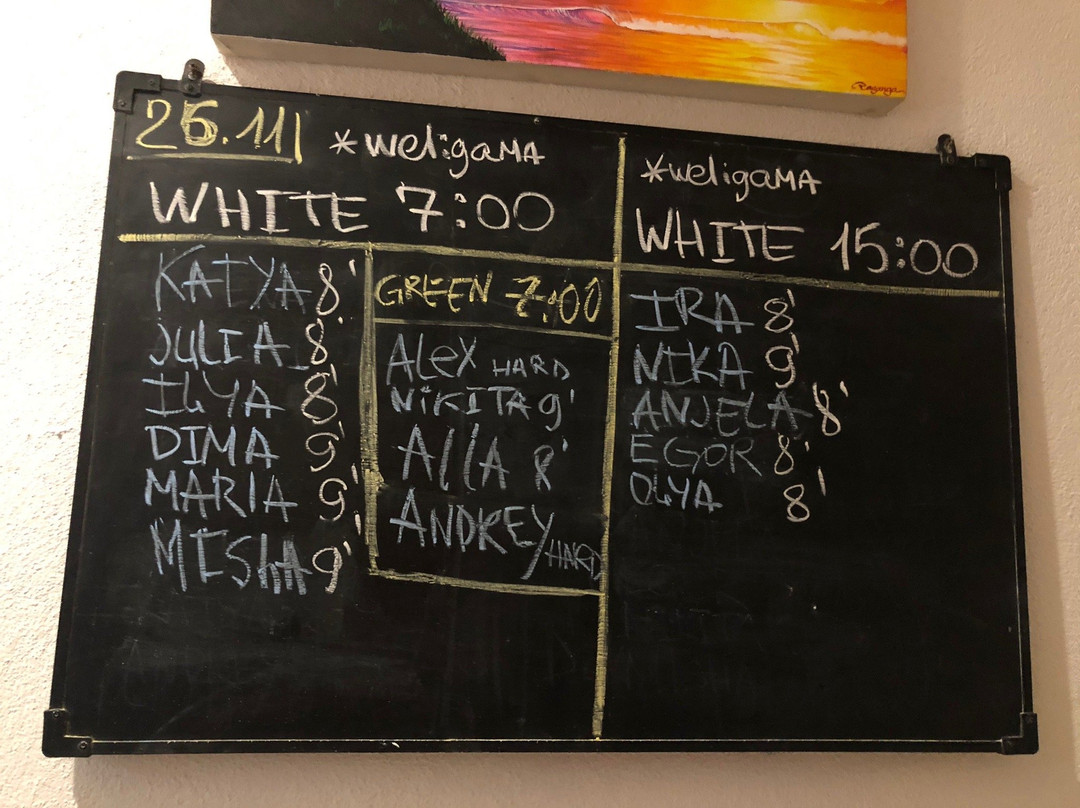 *weligama
26.11
WHITE 7:00
KATYA 8'
JULIA 8'
ILYA 8'
DIMA 9'
MARIA 9'
MISHA 9'
GREEN 7:00
ALEX HARD
NIKITA 9'
AllA 8'
ANDREY HARD
*weligama
WHITE 15:00
IRA 8'
NIKA 9'
ANJELA 8'
EGOR 8'
OLYA 8'